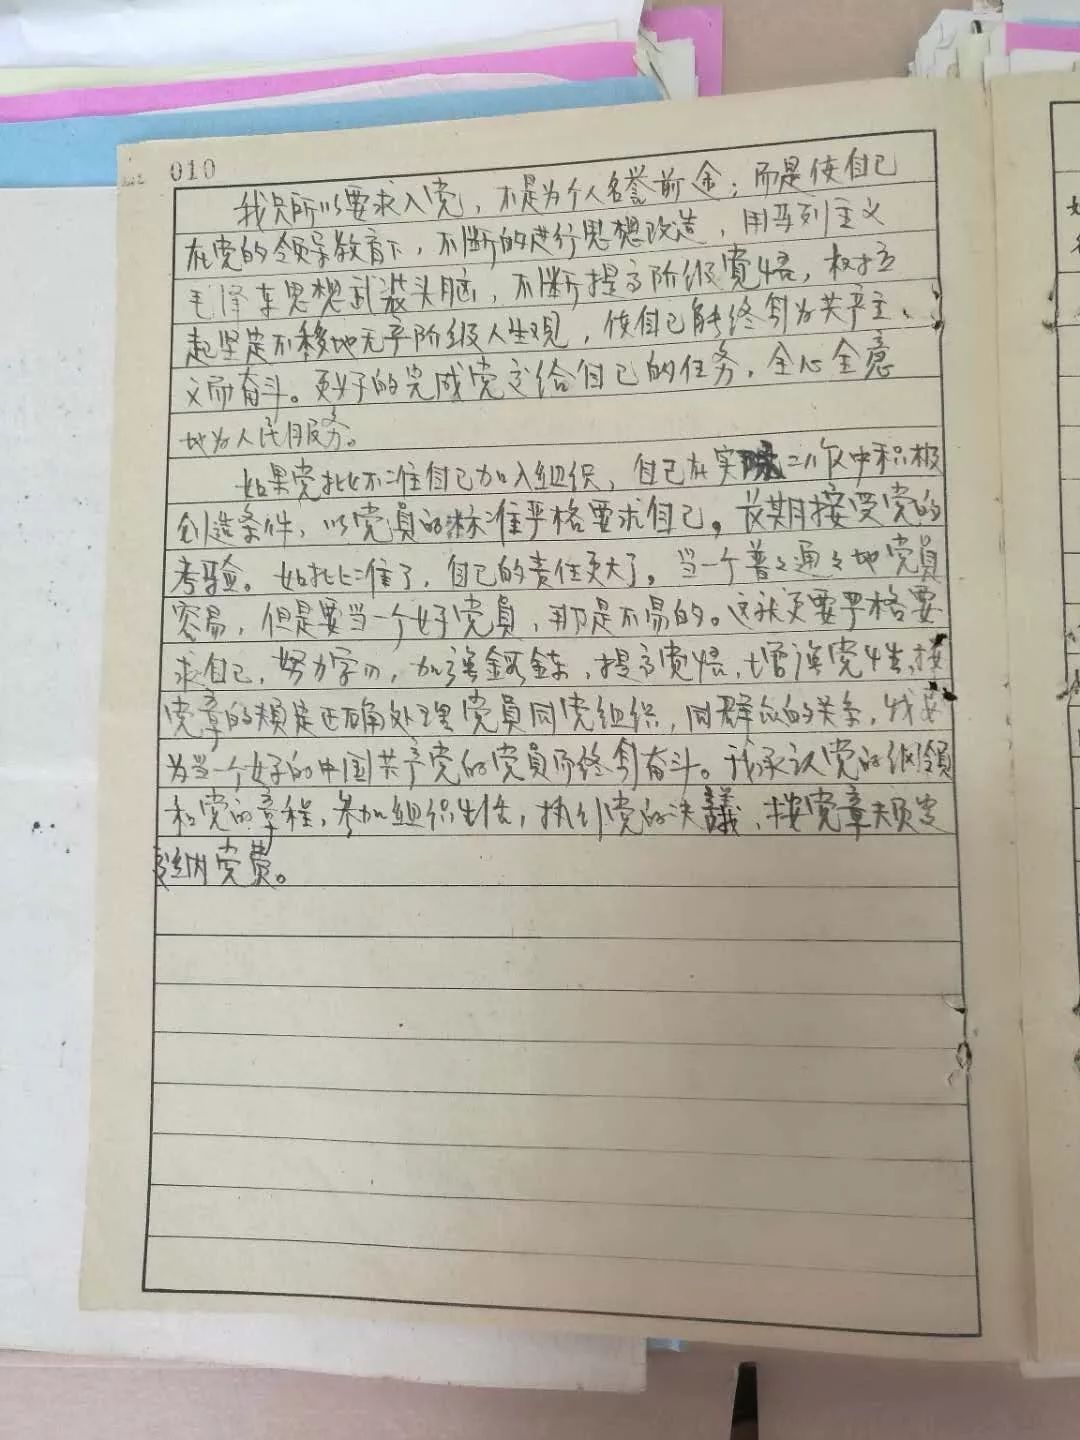 010
我只所以要求入党，不是为个人名誉前途；而是使自己
在党的领导教育下，不断的进行思想改造，用马列主义
毛泽东思想武装头脑，不断提高阶级觉悟，树立
起坚定不移地无产阶级人生观，使自己能终身为共产主
义而奋斗。更好的完成党交给自己的任务，全心全意
地为人民服务。
如果党批不准自己加入组织，自己在实际工作中积极
创造条件，以党员的标准严格要求自己，长期接受党的
考验。如批准了，自己的责任更大了。当一个普普通通地党员
容易，但是要当一个好党员，那是不易的。这就更要严格要
求自己，努力学习，加强锻鍊，提高觉悟，增强党性，按
党章的规定正确处理党员同党组织，同群众的关系，我要
为当一个好的中国共产党的党员而终身奋斗。我承认党的纲领
和党的章程，参加组织生活，执行党的决議，按党章规定
交纳党费。